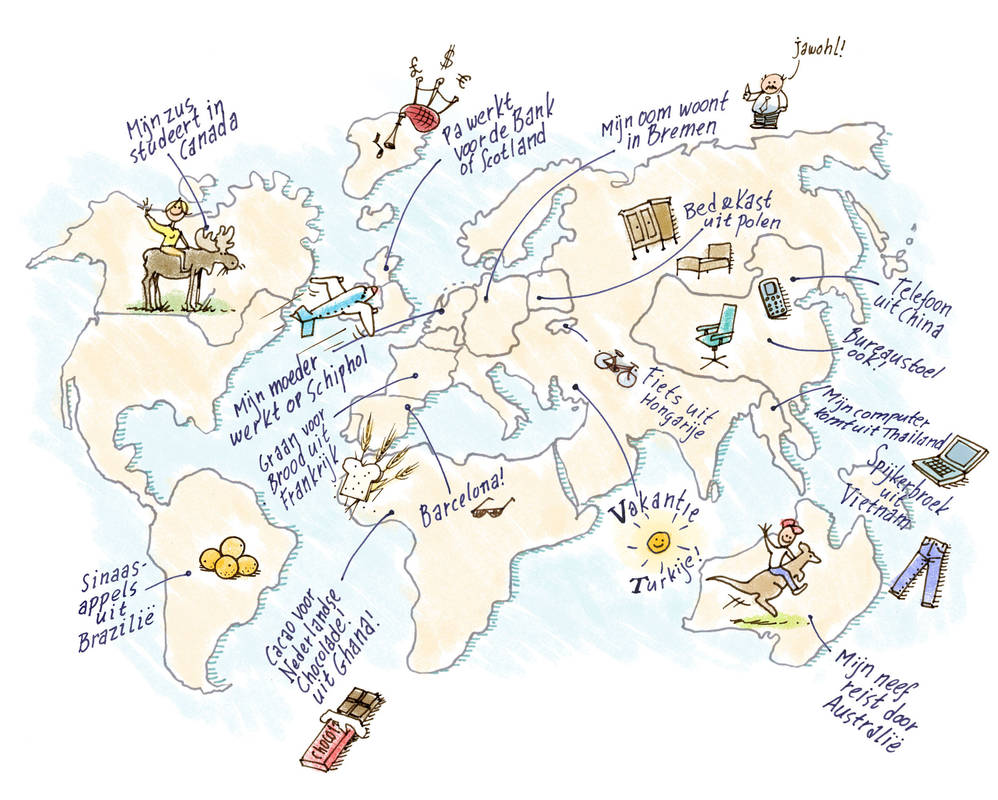 Mijn zus
studeert in
Canada
£ $ €
Pa werkt
voor de Bank
of Scotland
Mijn oom woont
in Bremen
jawohl!
Bed & Kast
uit Polen
Telefoon
uit China
Bureaustoel
ook!
Mijn computer
komt uit Thailand
Spijkerbroek
uit
Vietnam
Mijn moeder
werkt op Schiphol
Graan voor
Brood uit
Frankrijk
Barcelona!
Fiets uit
Hongarije
Vakantie
Turkije!
Sinaas-
appels
uit
Brazilië
Cacao voor
Nederlandse
Chocolade!
uit Ghana!
Mijn neef
reist door
Australië